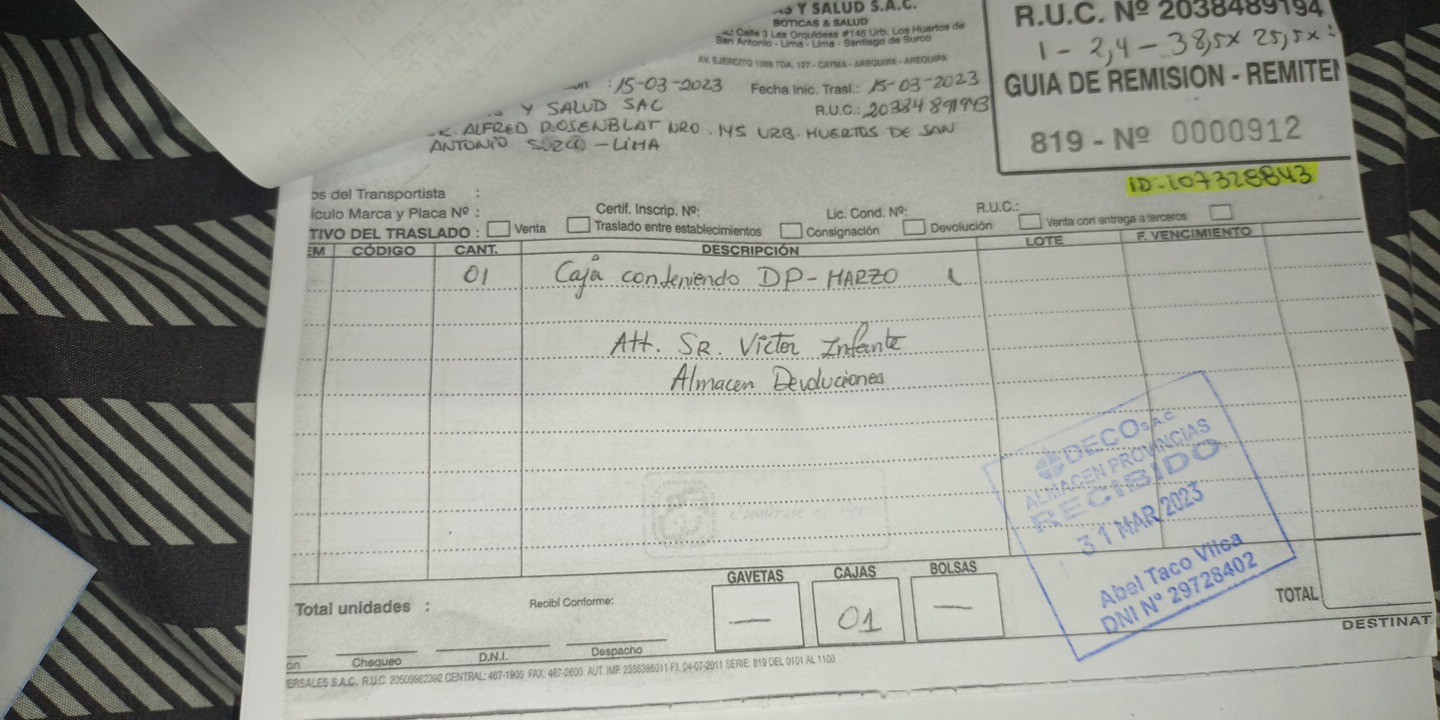 Y SALUD S.A.C.
BOTICAS & SALUD
Calle 3 Las Orquideas #145 Urb. Los Huertos de
San Antonio - Lima - Lima - Santiago de Surco
AV. EJERCITO 1009 TDA. 137 - CAYMA - AREQUIPA - AREQUIPA
R.U.C. Nº 2038489194
1 - 2,4 - 38,5x 25,5x
GUIA DE REMISION - REMITEN
819 - Nº 0000912
: 15-03-2023 Fecha Inic. Trasl.: 15-03-2023
Y SALUD SAC R.U.C.:
ALFRED ROSENBLAT NRO. 145 URB. HUERTOS DE SAN
ANTONIO SURCO - LIMA
ID-107328843
os del Transportista :
ículo Marca y Placa Nº : Certif. Inscrip. Nº: Lic. Cond. Nº: R.U.C.:
TIVO DEL TRASLADO : Venta Traslado entre establecimientos Consignación Devolución Venta con entrega a terceros
EM CÓDIGO CANT. DESCRIPCIÓN LOTE F. VENCIMIENTO
01 Caja conteniendo DP - MARZO
Att. SR. Victor Infante
Almacen Devoluciones
DECO S.A.C.
ALMACEN PROVINCIAS
RECIBIDO
31 MAR 2023
Abel Taco Vilca
DNI Nº 29728402
GAVETAS CAJAS BOLSAS
— 01 —
Total unidades : Recibí Conforme: TOTAL
DESTINAT
ón Chequeo D.N.I. Despacho
ERSALES S.A.C. R.U.C. 20509862392 CENTRAL: 467-1900 FAX: 467-2600 AUT. IMP. 2386386011 F.I. 04-07-2011 SERIE: 819 DEL 0101 AL 1100